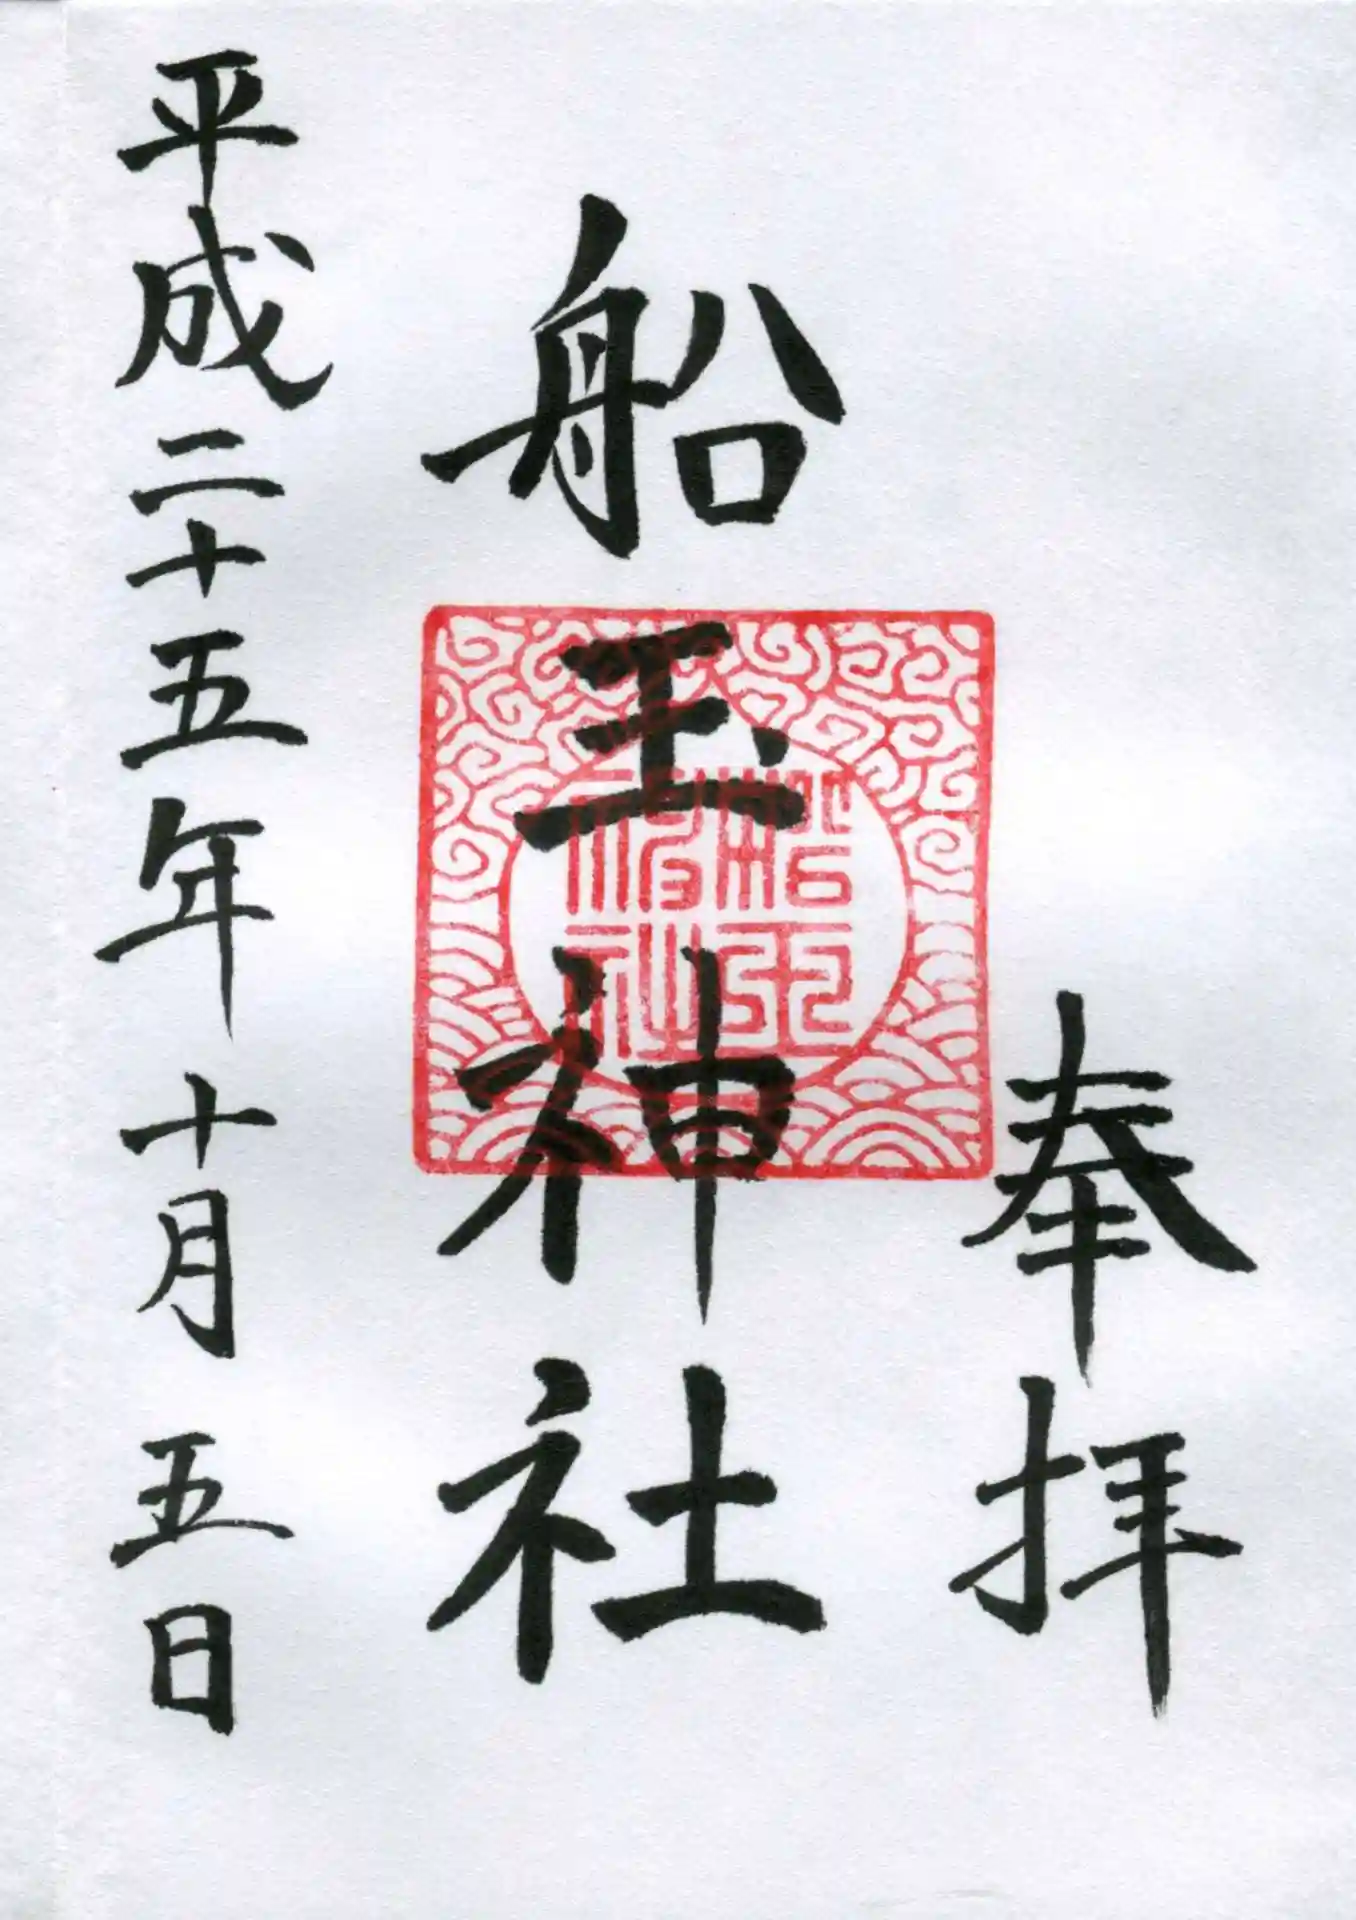 奉拝
船玉神社
平成二十五年十月五日
船玉神社